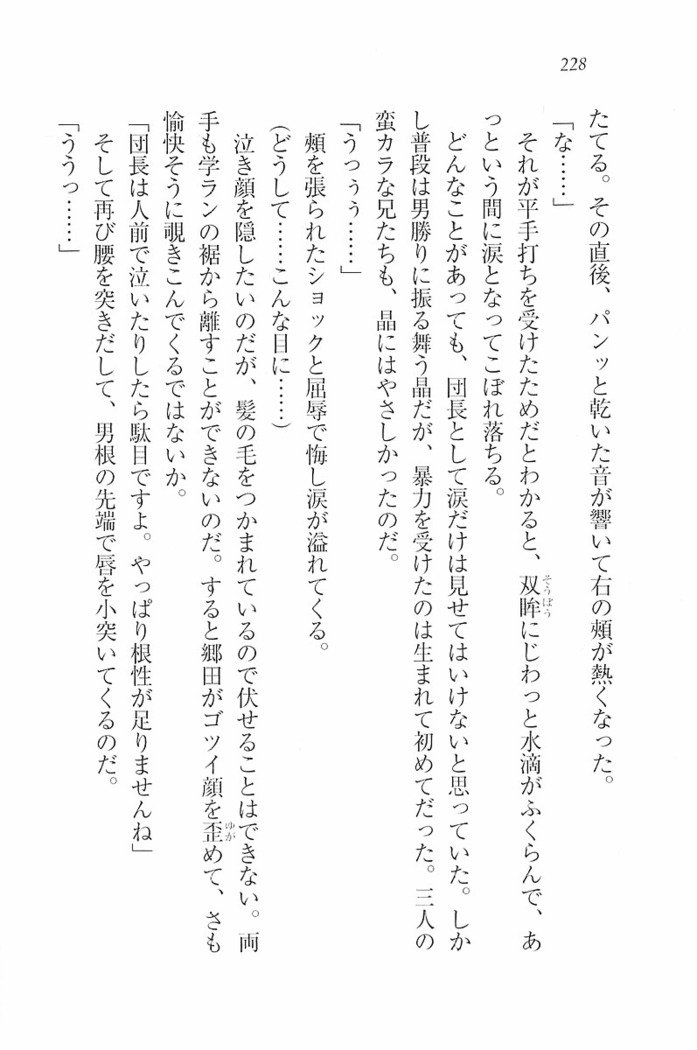 228
たてる。その直後、パンッと乾いた音が響いて右の頬が熱くなった。
「な……」
それが平手打ちを受けたためだとわかると、双眸にじわっと水滴がふくらんで、あ
そうぼう
っという間に涙となってこぼれ落ちる。
どんなことがあっても、団長として涙だけは見せてはいけないと思っていた。しか
し普段は男勝りに振る舞う晶だが、暴力を受けたのは生まれて初めてだった。三人の
蛮カラな兄たちも、晶にはやさしかったのだ。
「うっぅぅ……」
頬を張られたショックと屈辱で悔し涙が溢れてくる。
(どうして……こんな目に……)
泣き顔を隠したいのだが、髪の毛をつかまれているので伏せることはできない。両
手も学ランの裾から離すことができないのだ。すると郷田がゴツイ顔を歪めて、さも
ゆが
愉快そうに覗きこんでくるではないか。
「団長は人前で泣いたりしたら駄目ですよ。やっぱり根性が足りませんね」
そして再び腰を突きだして、男根の先端で唇を小突いてくるのだ。
「ううっ……」